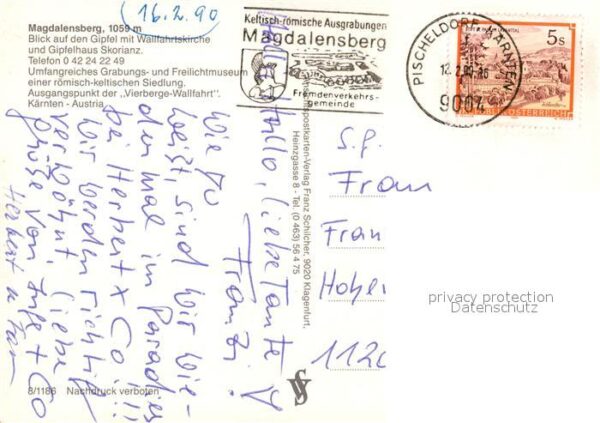 (16.2.90)
Magdalensberg, 1059 m
Blick auf den Gipfel mit Wallfahrtskirche
und Gipfelhaus Skorianz.
Telefon 0 42 24 22 49
Umfangreiches Grabungs- und Freilichtmuseum
einer römisch-keltischen Siedlung.
Ausgangspunkt der „Vierberge-Wallfahrt".
Kärnten - Austria
Keltisch-römische Ausgrabungen
Magdalensberg
Fremdenverkehrs-
gemeinde
PISCHELDORF, KÄRNTEN
9064
5s
REPUBLIK ÖSTERREICH
Hallo, liebe Tante
Franzi!
Wie Du
weißt, sind wir wie-
der mal im Paradies
bei Herbert + Co!!!
Wir werden richtig
verwöhnt. Liebe
Grüße von
+ Co
Herbert u. Fam
postkarten-Verlag Franz Schilcher, 9020 Klagenfurt,
Heinzgasse 8 - Tel. (0 463) 56 4 75
S.g.
Frau
Fran
Hohen
112
privacy protection
Datenschutz
8/1186 Nachdruck verboten